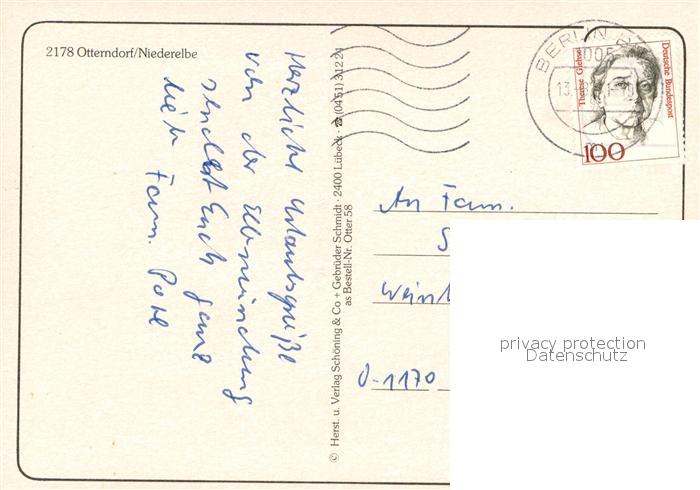 2178 Otterndorf/Niederelbe
Herzliche Urlaubsgrüße
von der Elbmündung
sendet Euch ganz
lieb Fam.
© Herst. u. Verlag Schöning & Co + Gebrüder Schmidt · 2400 Lübeck · ☎ (04 51) 3 12 21
as Bestell-Nr. Otter 58
BERLIN
Deutsche Bundespost
Therese Giehse
100
An Fam.
S
Wein
O-1170
privacy protection
Datenschutz